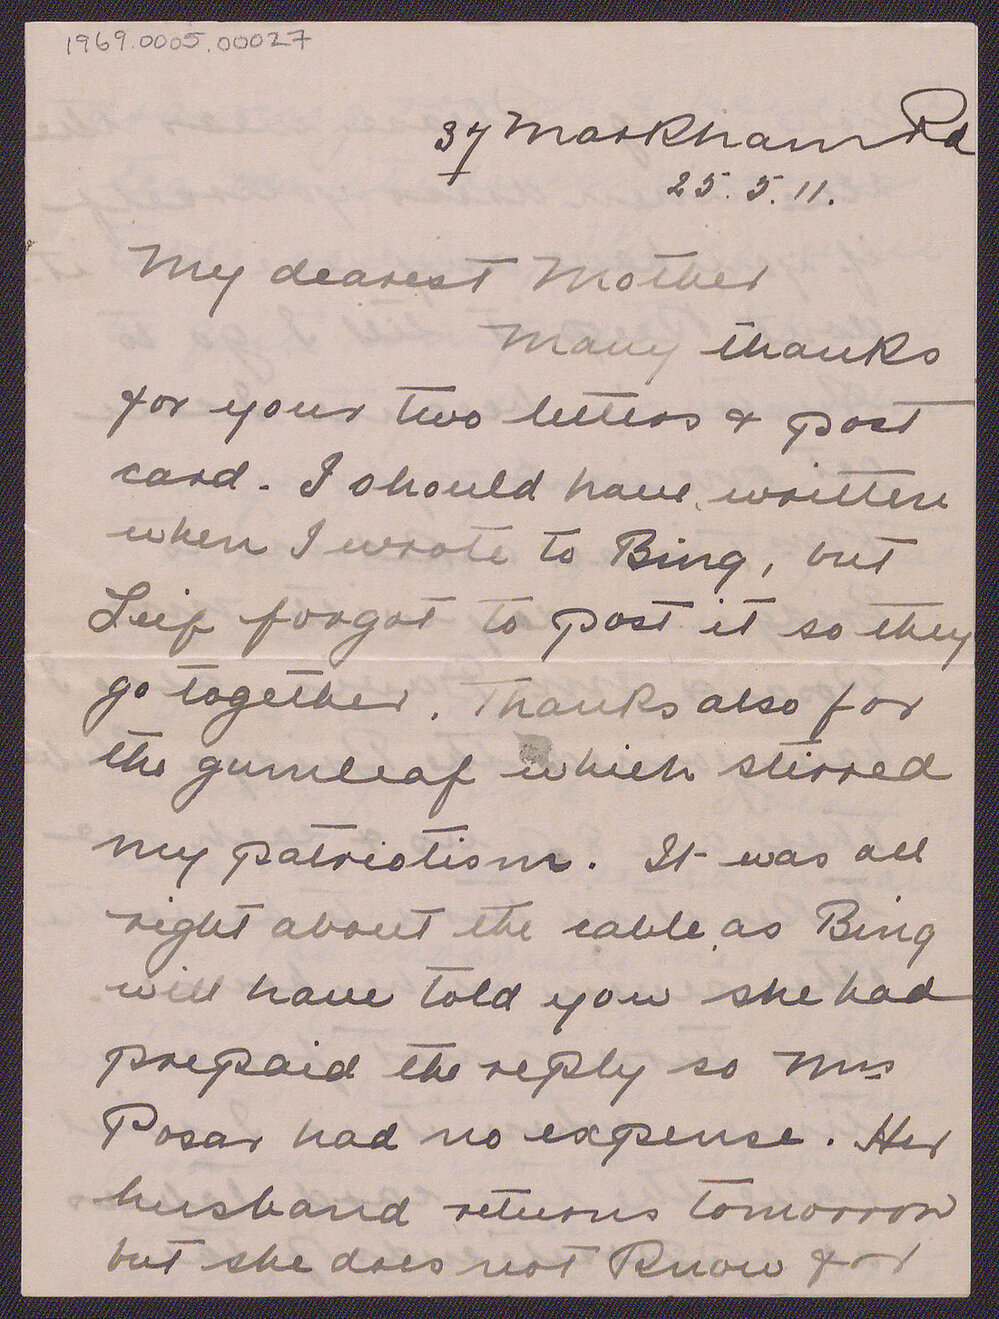 1969.0005.00027
37 Markham Rd
25.5.11.
My dearest Mother
Many thanks
for your two letters & post
card. I should have written
when I wrote to Bing, but
Leif forgot to post it so they
go together. Thanks also for
the gumleaf which stirred
my patriotism. It was all
right about the cable as Bing
will have told you she had
prepaid the reply so Mrs
Posar had no expense. Her
husband returns tomorrow
but she does not know for